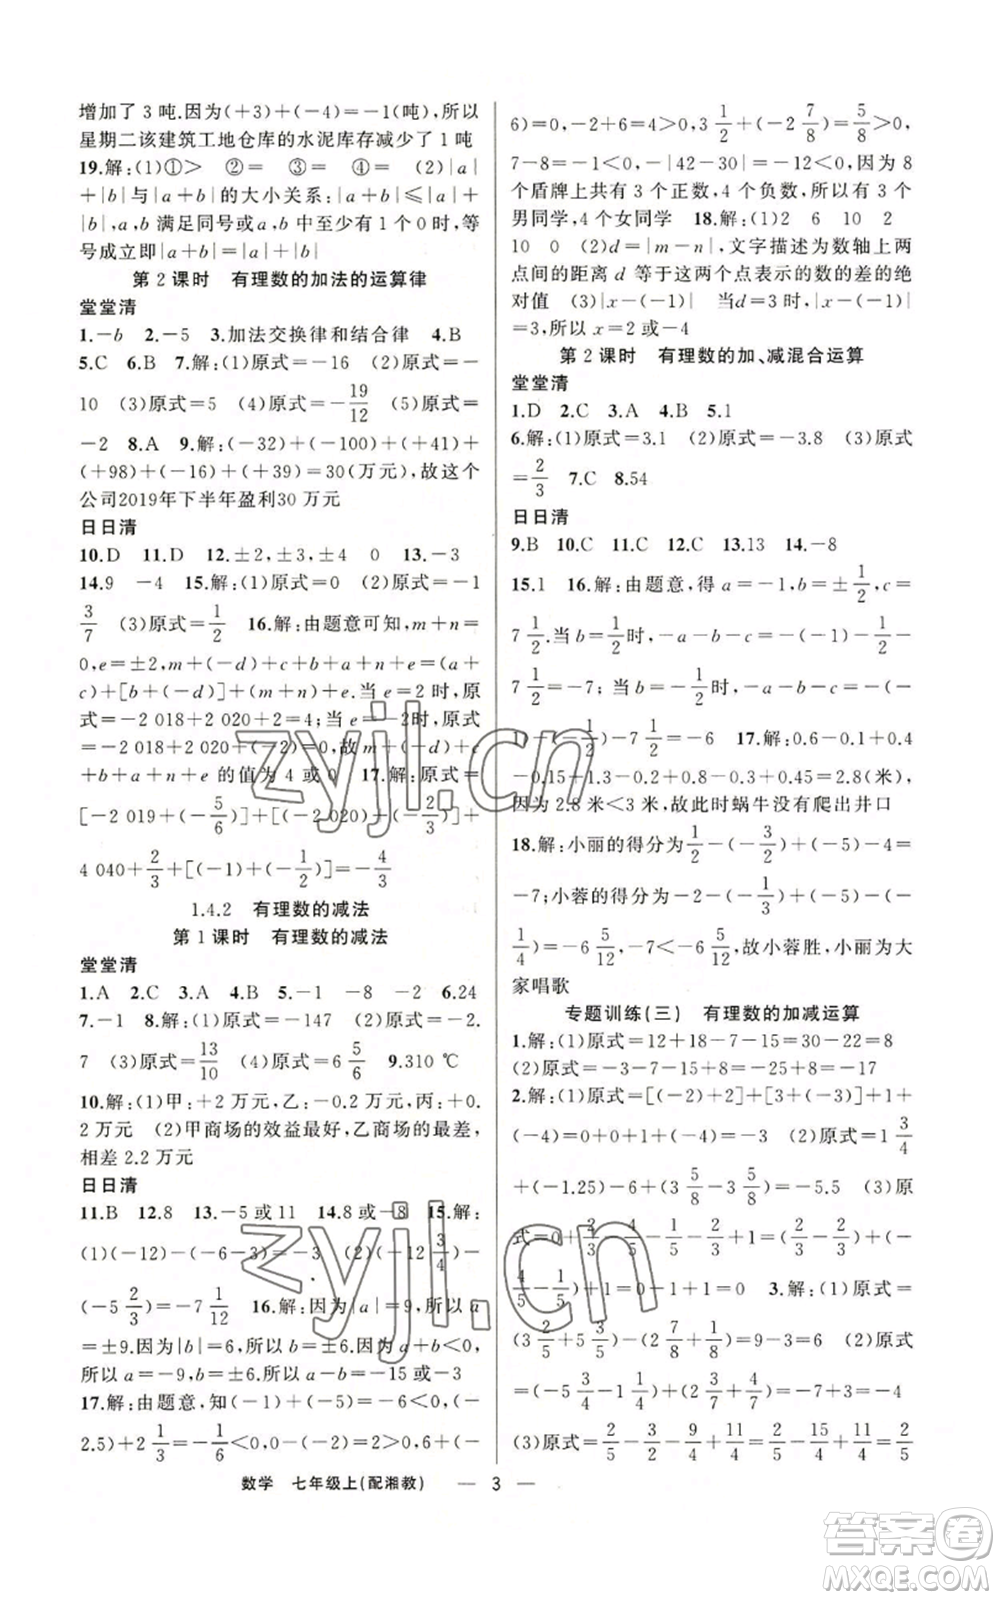 增加了 3 吨.因为(+3)+(-4)=-1(吨),所以
星期二该建筑工地仓库的水泥库存减少了 1 吨
19.解:(1)①> ②= ③= ④= (2)|a|
+|b|与|a+b|的大小关系:|a+b|≤|a|+
|b|,a,b 满足同号或a,b 中至少有 1 个 0 时,等
号成立即|a+b|=|a|+|b|
第 2 课时 有理数的加法的运算律
堂堂清
1.-b 2.-5 3.加法交换律和结合律 4.B
5.C 6.B 7.解:(1)原式=-16 (2)原式=-
10 (3)原式=5 (4)原式=-19/12 (5)原式=
-2 8.A 9.解:(-32)+(-100)+(+41)+
(+98)+(-16)+(+39)=30(万元),故这个
公司2019年下半年盈利30 万元
日日清
10.D 11.D 12.±2,±3,±4 0 13.-3
14.9 -4 15.解:(1)原式=0 (2)原式=-1
3/7 (3)原式=1/2 16.解:由题意可知,m+n=
0,e=±2,m+(-d)+c+b+a+n+e=(a+
c)+[b+(-d)]+(m+n)+e.当 e=2时,原
式=-2 018+2 020+2=4;当 e=-2时,原式
=-2 018+2 020+(-2)=0,故 m+(-d)+c
+b+a+n+e 的值为 4 或 0 17.解:原式=
[-2 019+(-5/6)]+[(-2 020)+(-2/3)]+
4 040+2/3+[(-1)+(-1/2)]=-4/3
1.4.2 有理数的减法
第 1 课时 有理数的减法
堂堂清
1.A 2.C 3.A 4.B 5.-1 -8 -2 6.24
7.-1 8.解:(1)原式=-147 (2)原式=-2.
7 (3)原式=13/10 (4)原式=6 5/6 9.310 ℃
10.解:(1)甲:+2 万元,乙:-0.2 万元,丙:+0.
2 万元 (2)甲商场的效益最好,乙商场的最差,
相差 2.2 万元
日日清
11.B 12.8 13.-5 或 11 14.8 或-8 15.解:
(1)(-12)-(-6-3)=-3 (2)(-12 3/4)-
(-5 2/3)=-7 1/12 16.解:因为|a|=9,所以 a
=±9.因为|b|=6,所以 b=±6.因为 a+b<0,
所以 a=-9,b=±6.所以 a-b=-15 或-3
17.解:由题意,知(-1)+(-5)=-6<0,(-
2.5)+2 1/3=-1/6<0,0-(-2)=2>0,6+(-
6)=0,-2+6=4>0,3 1/2+(-2 7/8)=5/8>0,
7-8=-1<0,-|42-30|=-12<0.因为 8
个盾牌上共有 3 个正数,4 个负数,所以有 3 个
男同学,4 个女同学 18.解:(1)2 6 10 2
10 0 (2)d=|m-n|,文字描述为数轴上两
点间的距离 d 等于这两个点表示的数的差的绝
对值 (3)|x-(-1)| 当d=3 时,|x-(-1)|
=3,所以 x=2 或-4
第 2 课时 有理数的加、减混合运算
堂堂清
1.D 2.C 3.A 4.B 5.1
6.解:(1)原式=3.1 (2)原式=-3.8 (3)原式
=2/3 7.C 8.54
日日清
9.B 10.C 11.C 12.C 13.13 14.-8
15.1 16.解:由题意,得 a=-1,b=±1/2,c=
7 1/2.当 b=1/2时,-a-b-c=-(-1)-1/2-
7 1/2=-7;当b=-1/2时,-a-b-c=-(-
1)-(-1/2)-7 1/2=-6 17.解:0.6-0.1+0.4
-0.15+1.3-0.2+0.8-0.3+0.45=2.8(米),
因为 2.8 米<3 米,故此时蜗牛没有爬出井口
18.解:小丽的得分为1/2-(-3/2)+(-5)-4=
-7;小蓉的得分为-2-(-1/3)+(-5)-(-
1/4)=-6 5/12,-7<-6 5/12,故小蓉胜,小丽为大
家唱歌
专题训练(三) 有理数的加减运算
1.解:(1)原式=12+18-7-15=30-22=8
(2)原式=-3-7-15+8=-25+8=-17
2.解:(1)原式=[(-2)+2]+[3+(-3)]+1+
(-4)=0+0+1+(-4)=-3 (2)原式=1 3/4
+(-1.25)-6+(3 5/8-3 5/8)=-5.5 (3)原
式=0+2/3-4/5-1/5+(-2/3)+1+(-
4/5-1/5)+1=0-1+1=0 3.解:(1)原式=
(3 2/5+5 3/5)-(2 7/8+1/8)=9-3=6 (2)原式
=(5 3/4-1 1/4)+(-7 2/5-1/5)=-7+3/4=
(3)原式=-3/4-2/4-9/4+4/4=-10/4=-5/2
数学 七年级上(配湘教) — 3 —
zyjl.cn
zyjl.cn
答案圈
MXQE.COM